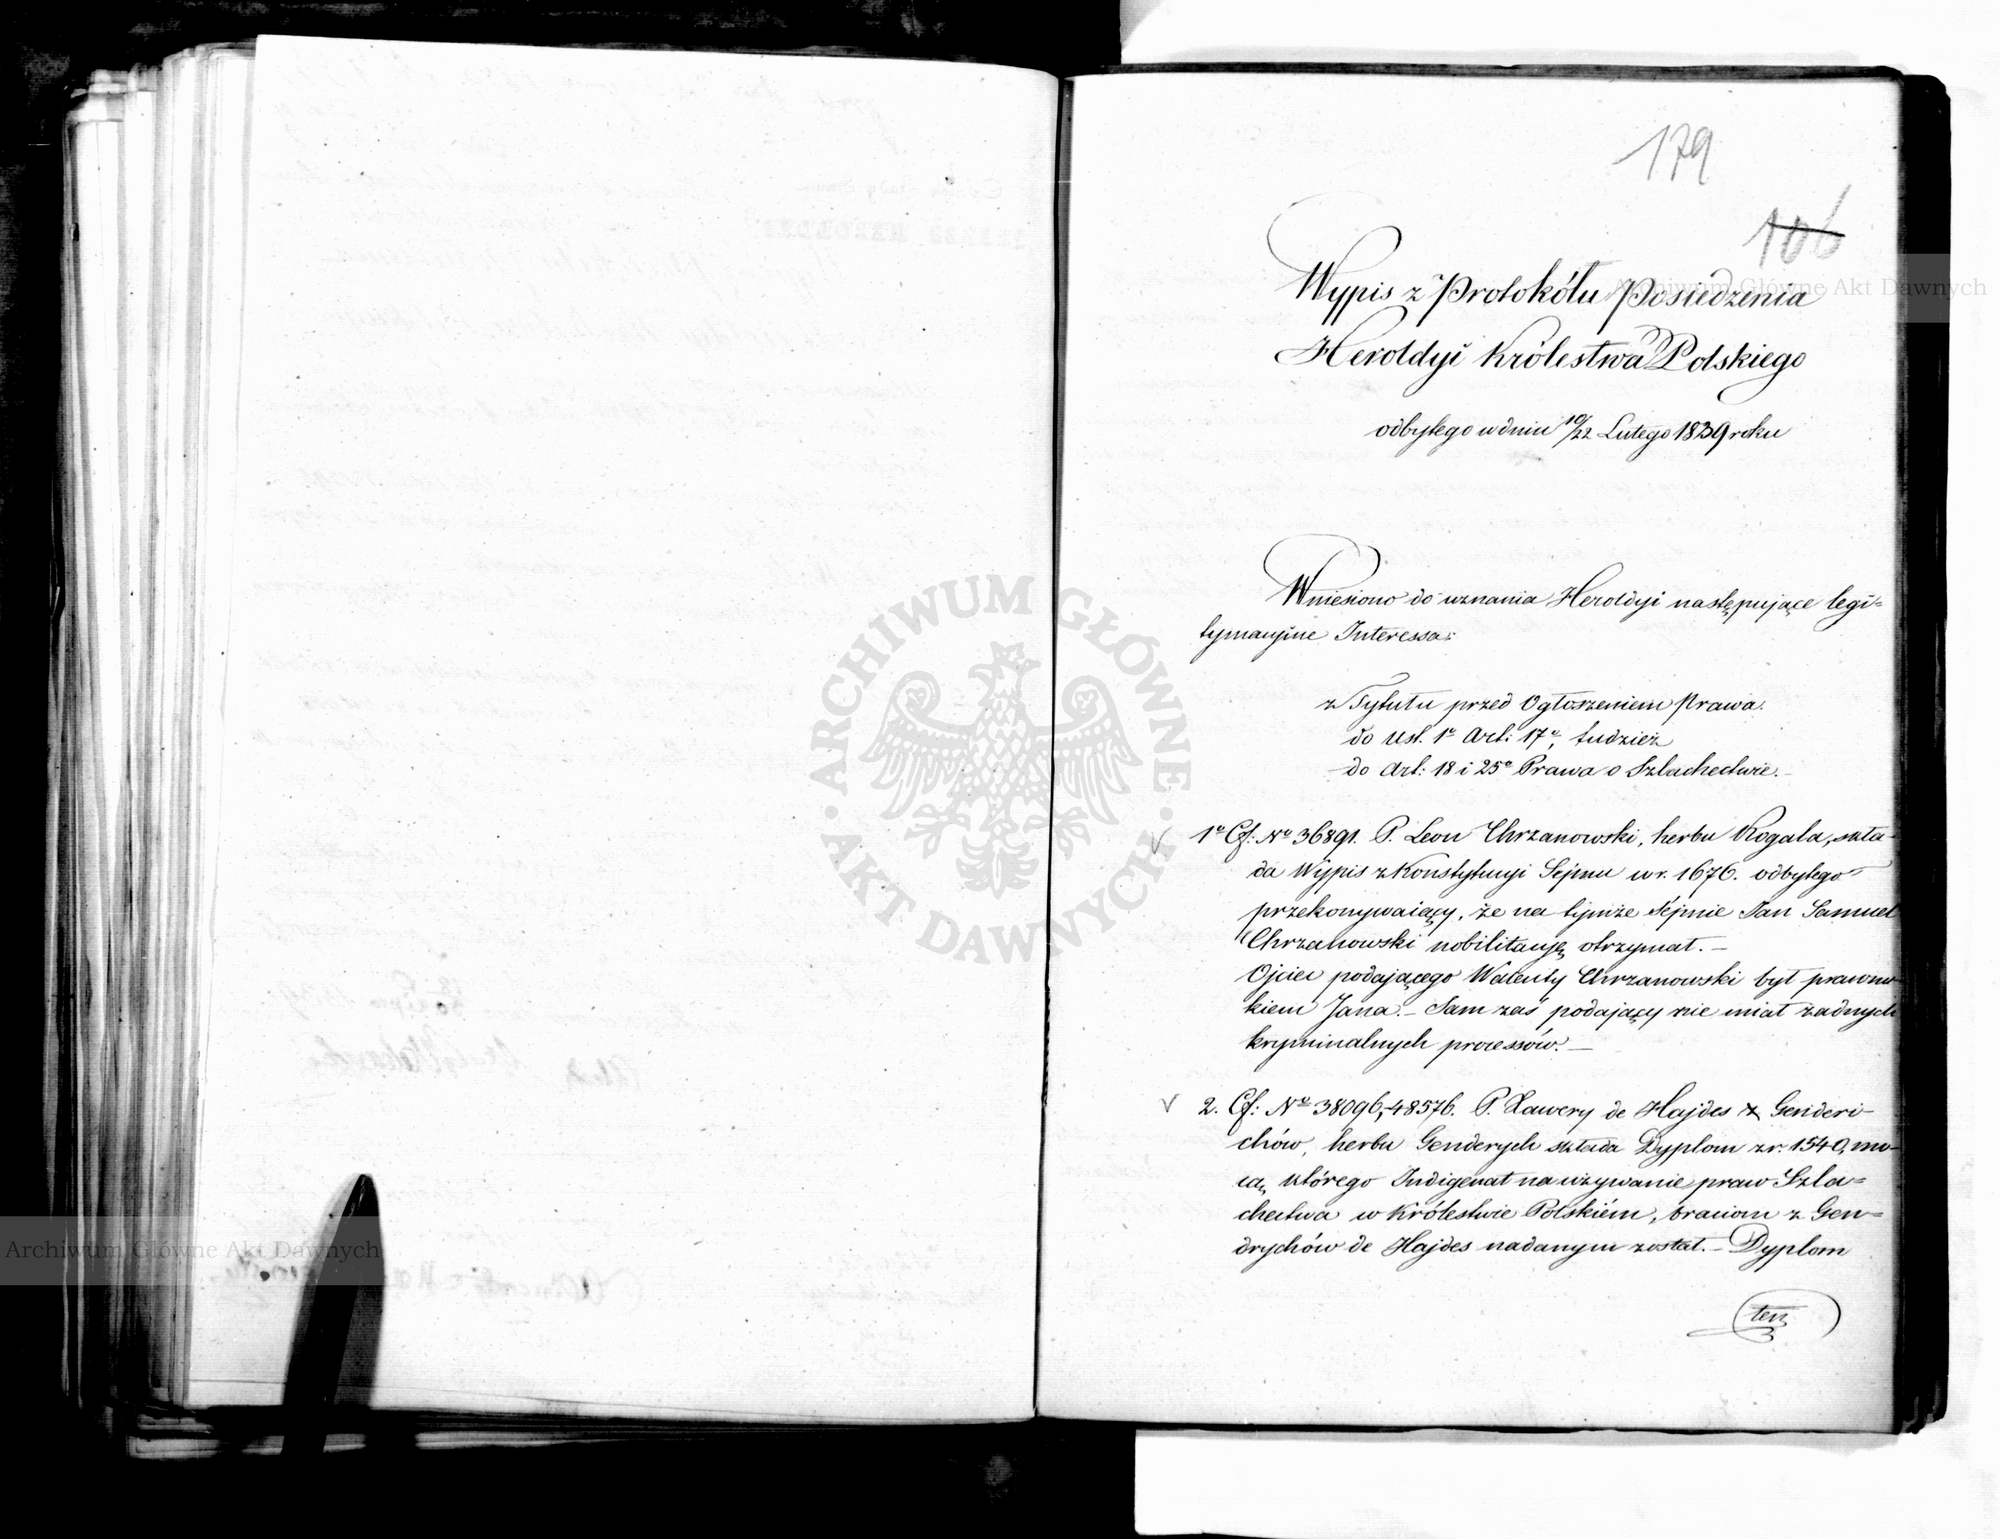 179
106
Wypis z Protokółu Posiedzenia
Heroldyi Królestwa Polskiego
odbytego w dniu 10/22 Lutego 1839 roku
Wniesiono do uznania Heroldyi następujące legi=
tymacyjne Interessa:
z Tytułu przed Ogłoszeniem Prawa.
do Ust. 1º Art: 17º, tudzież
do Art: 18 i 25º Prawa o Szlachectwie.
1º Cf: Nº 36891. P. Leon Chrzanowski, herbu Rogala, skła-
da Wypis z Konstytucyi Sejmu w r. 1676. odbytego
przekonywaiący, że na tymże Sejmie Jan Samuel
Chrzanowski nobilitacyę otrzymał. –
Ojciec podającego Walenty Chrzanowski był prawnu-
kiem Jana. – Sam zaś podający nie miał żadnych
kryminalnych processów. –
2. Cf: Nº 38096, 48576. P. Xawery de Hajdes z Genderi-
chów, herbu Genderych składa Dyplom z r. 1540, mo-
cą którego Indigenat na używanie praw Szla=
chectwa w Królestwie Polskiém, braciom z Gen=
drychów de Hajdes nadanym został. – Dyplom
ten
ARCHIWUM GŁÓWNE AKT DAWNYCH
Archiwum Główne Akt Dawnych
Archiwum Główne Akt Dawnych